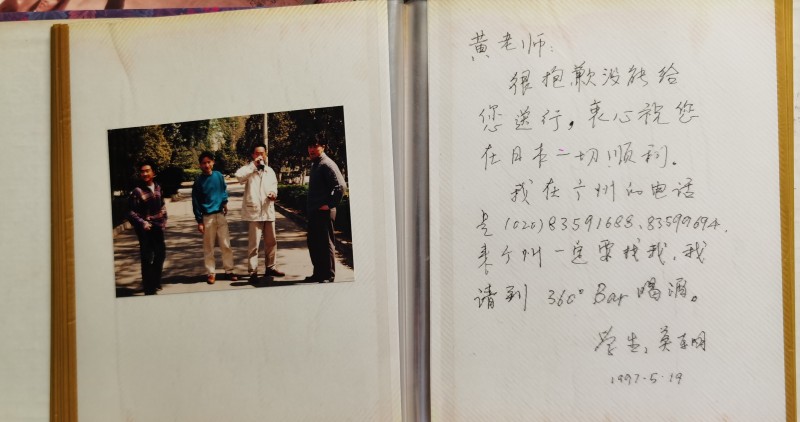 黄老师:
很抱歉没能给
您送行,衷心祝您
在日本一切顺利。
我在广州的电话
是(020)83591688、83599694.
来广州一定要找我,我
请到 360° Bar 喝酒。
学生:莫
1997-5-19